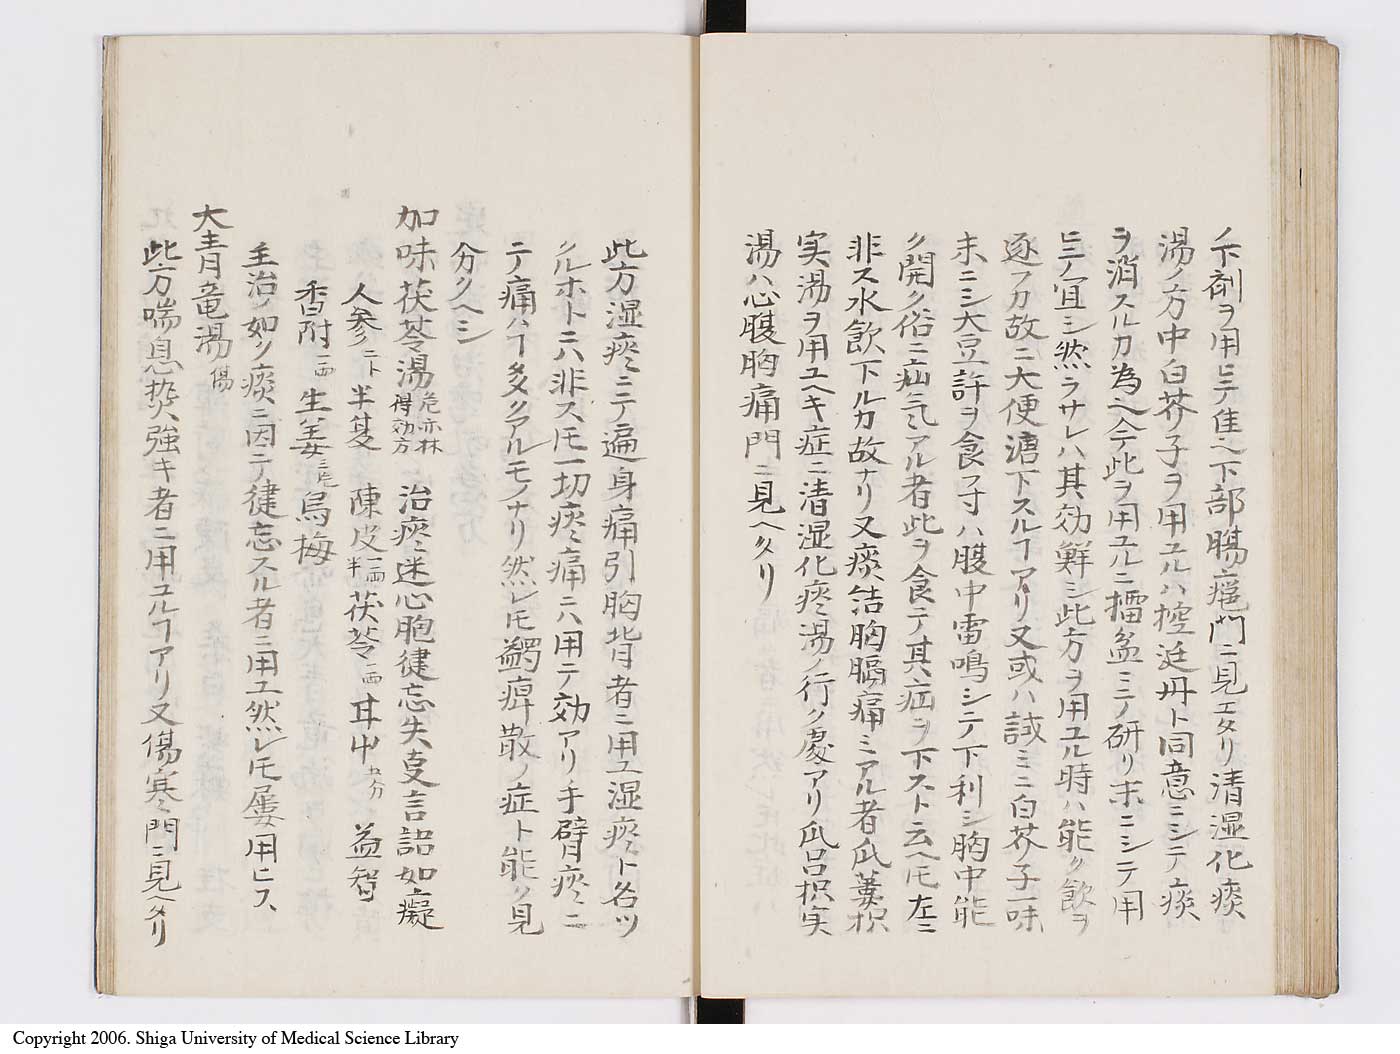 ノ下剤ヲ用ヒテ佳ヘ下部腸癰門ニ見エタリ清湿化痰
湯ノ方中白芥子ヲ用ユルハ控涎丹ト同意ニシテ痰
ヲ消スルカ為ヘ今テ此ヲ用ユルニ擂盆ミノ研リ末ニシテ用
ヒテノ宜シ然ラサレハ其効鮮シ此方ヲ用ユル時ハ能ク飲ヲ
逐フカ故ニ大便溏下スルヿアリ又或ハ試ミニ白芥子一味
末ニシ大豆許ヲ食フ寸ハ腹中雷鳴シテ下利シ胸中能
ク開ク俗ニ疝気アル者此ヲ食テ其疝ヲ下スト云ヘ𪜈左ニ
非ス水飲下ルカ故ナリ又痰結胸膈痛ミアル者瓜蔞枳
実湯ヲ用ユヘキ症ニ清湿化痰湯ノ行ク處アリ瓜呂枳実
湯ハ心腹胸痛門ニ見ヘタリ
此方湿痰ニテ遍身痛引胸背者ニ用ユ湿痰ト名ツ
クルホトニハ非ス𪜈一切痰痛ニハ用テ効アリ手臂痰ニ
テ痛ハヿ多クアルモノナリ然レ𪜈蠲痺散ノ症ト能ク見
分クヘシ
加味茯苓湯 危亦林得効方 治痰迷心胞健忘失㕝言語如癡
人参 二ト 半夏 陳皮 一両半 茯苓 一両 耳中 五分 益智
香附 一両 生姜 三片 烏梅
主治ノ如ク痰ニ因テ健忘スル者ニ用ユ然レ𪜈屢用ヒス
大青竜湯 傷
此方喘息㷔強キ者ニ用ユルヿアリ又傷寒門ニ見ヘタリ
Copyright 2006. Shiga University of Medical Science Library